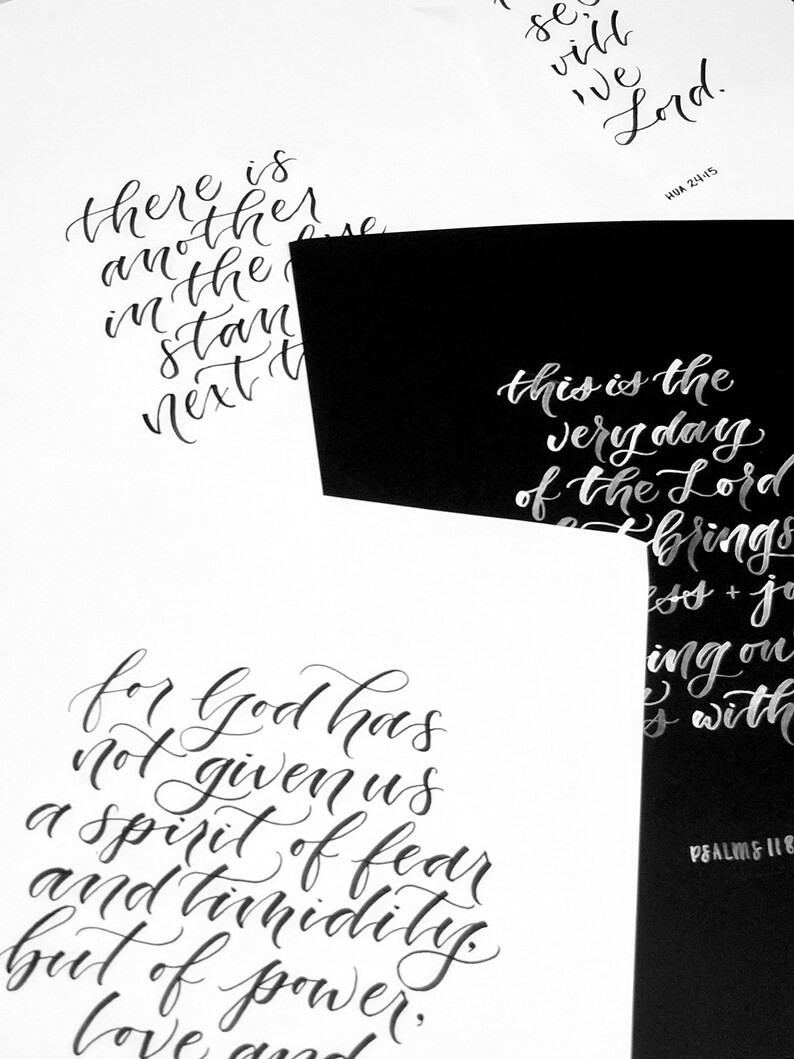 se,
will
Lord.
HUA 24:15
there is
another
in the
next
this is the
very day
of the Lord
brings
+
with
PSALMS 118
for God has
not given us
a spirit of fear
and timidity,
but of power,
love and